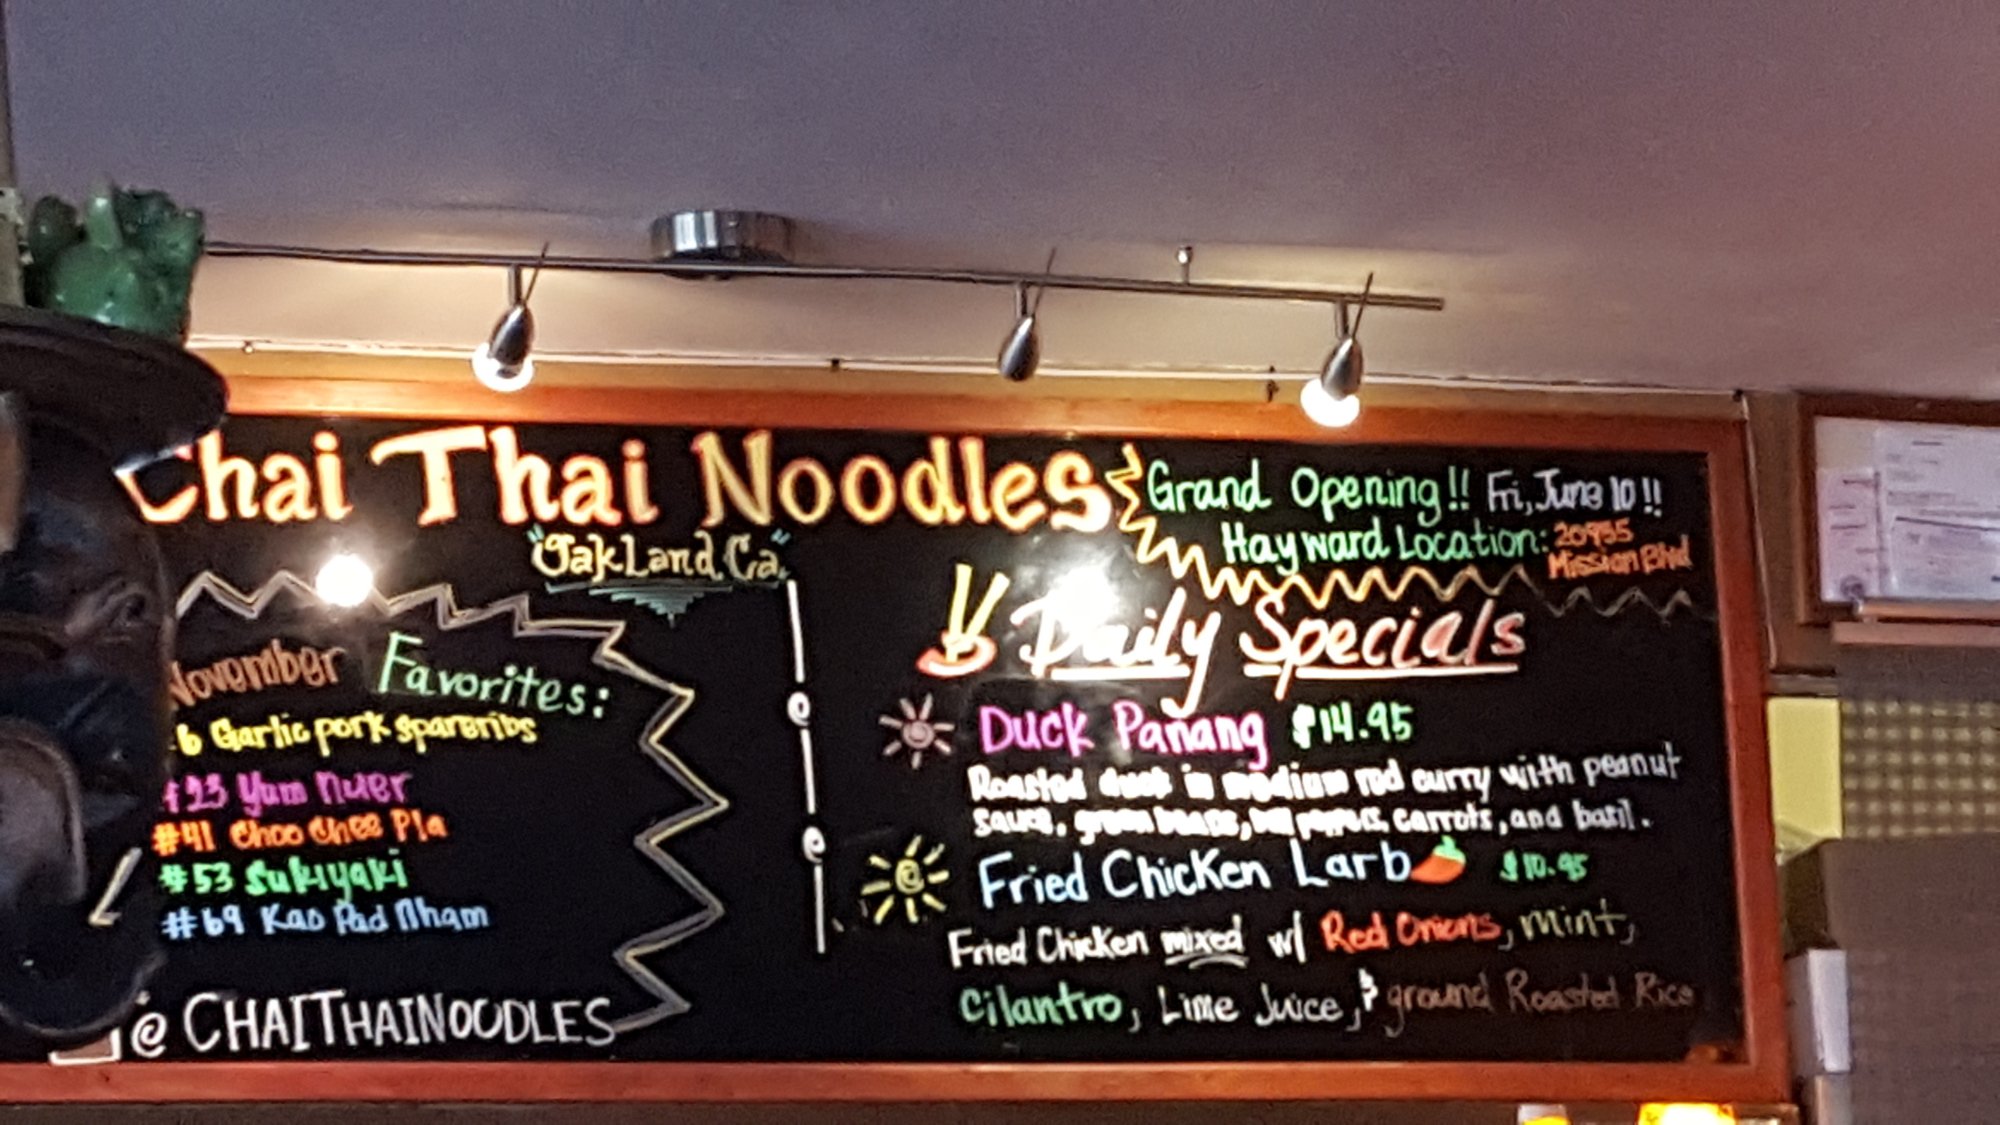 Chai Thai Noodles
"Oakland, Ca."
Grand Opening!! Fri, June 10!!
Hayward Location: 20955
Mission Blvd
November Favorites:
6 Garlic pork spareribs
#23 Yum Nuer
#41 Choo Chee Pla
#53 Sukiyaki
#69 Kao Pad Nham
@CHAITHAINOODLES
Daily Specials
Duck Panang $14.95
Roasted duck in medium red curry with peanut
sauce, green beans, bell peppers, carrots, and basil.
Fried Chicken Larb $10.95
Fried Chicken mixed w/ Red Onions, mint,
Cilantro, Lime Juice, & ground Roasted Rice